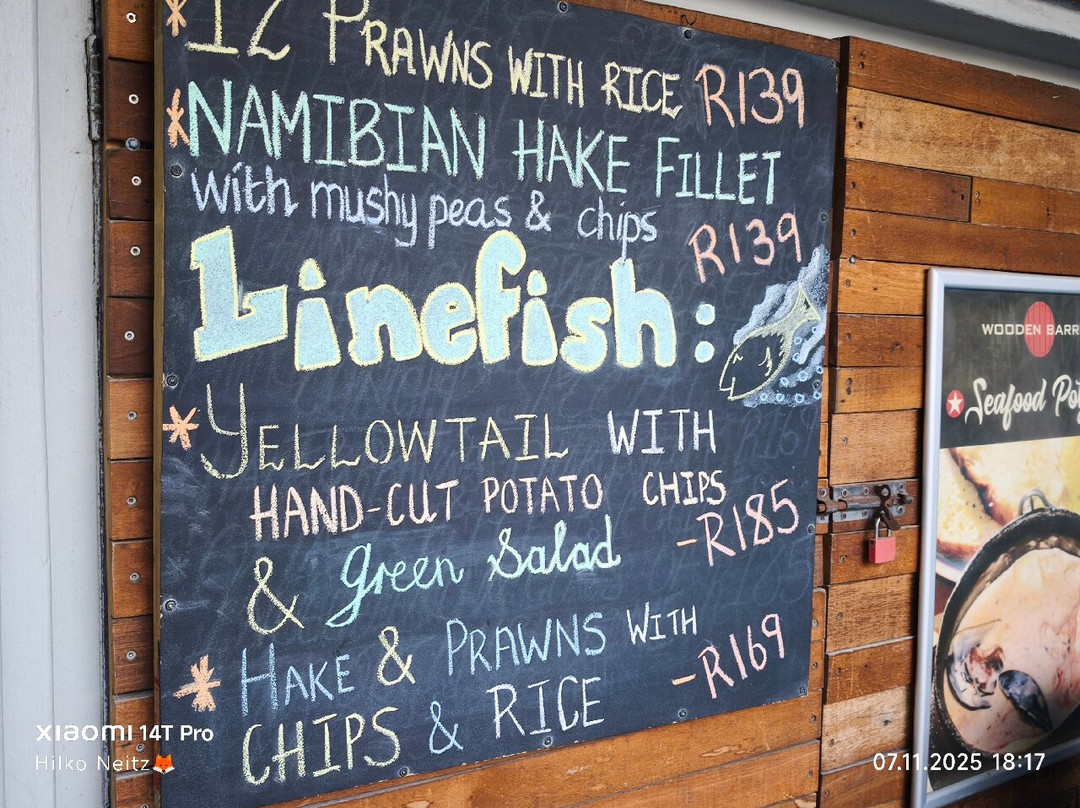 12 PRAWNS WITH RICE R139
NAMIBIAN HAKE FILLET
with mushy peas & chips R139
Linefish:
YELLOWTAIL WITH
HAND-CUT POTATO CHIPS
& green Salad -R185
HAKE & PRAWNS WITH
CHIPS & RICE -R169
WOODEN BARR
Seafood Pot
XIAOMI 14T Pro
Hilko Neitz🦊
07.11.2025 18:17